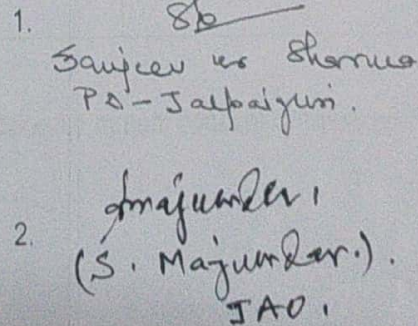 1.
Sanjeev kr Sharma
PD - Jalpaiguri.
2. SMajumder,
(S. Majumder.).
JAO,